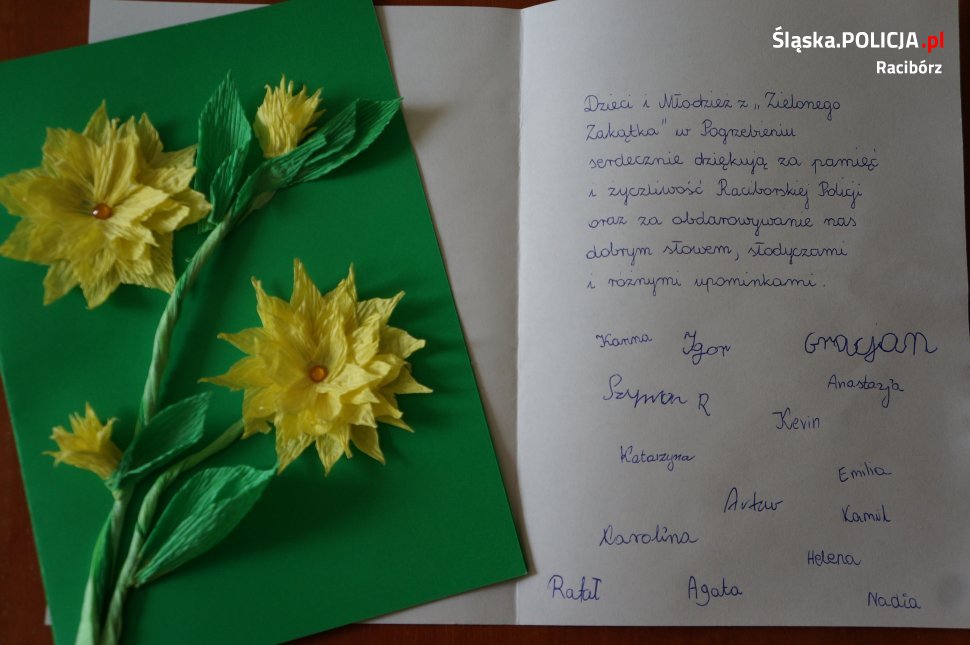 Śląska.POLICJA.pl
Racibórz
Dzieci i Młodzież z „Zielonego
Zakątka" w Pogrzebieniu
serdecznie dziękują za pamięć
i życzliwość Raciborskiej Policji
oraz za obdarowywanie nas
dobrym słowem, słodyczami
i różnymi upominkami.
Hanna Igor Gracjan
Szymon R Anastazja
Kevin
Katarzyna Emilia
Artur Kamil
Karolina
Helena
Rafał Agata Nadia